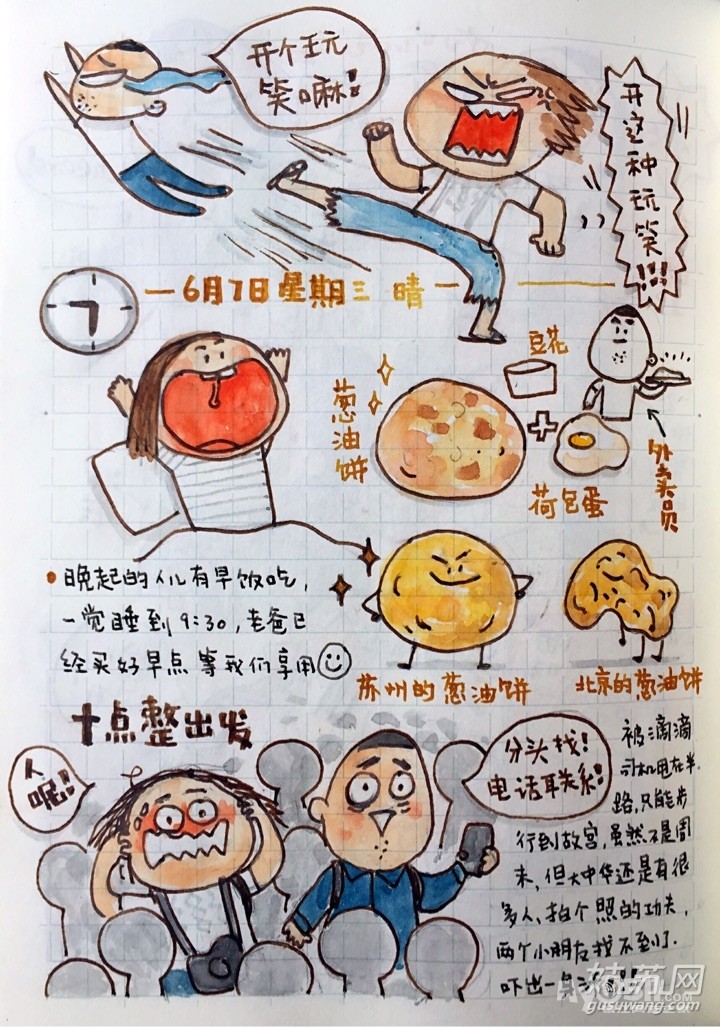 开个玩
笑嘛!
开这种玩笑!!!
6月7日星期三 晴
豆花
葱油饼
荷包蛋
外卖员
晚起的人儿有早饭吃,
一觉睡到9:30,老爸已
经买好早点等我们享用
苏州的葱油饼
北京的葱油饼
十点整出发
人
呢!!
分头找!
电话联系!
被滴滴
司机甩在半
路,只能步
行到故宫,虽然不是周
末,但大中华还是有很
多人,拍个照的功夫,
两个小朋友找不到了.
吓出一身
姑苏网
gusuwang.com